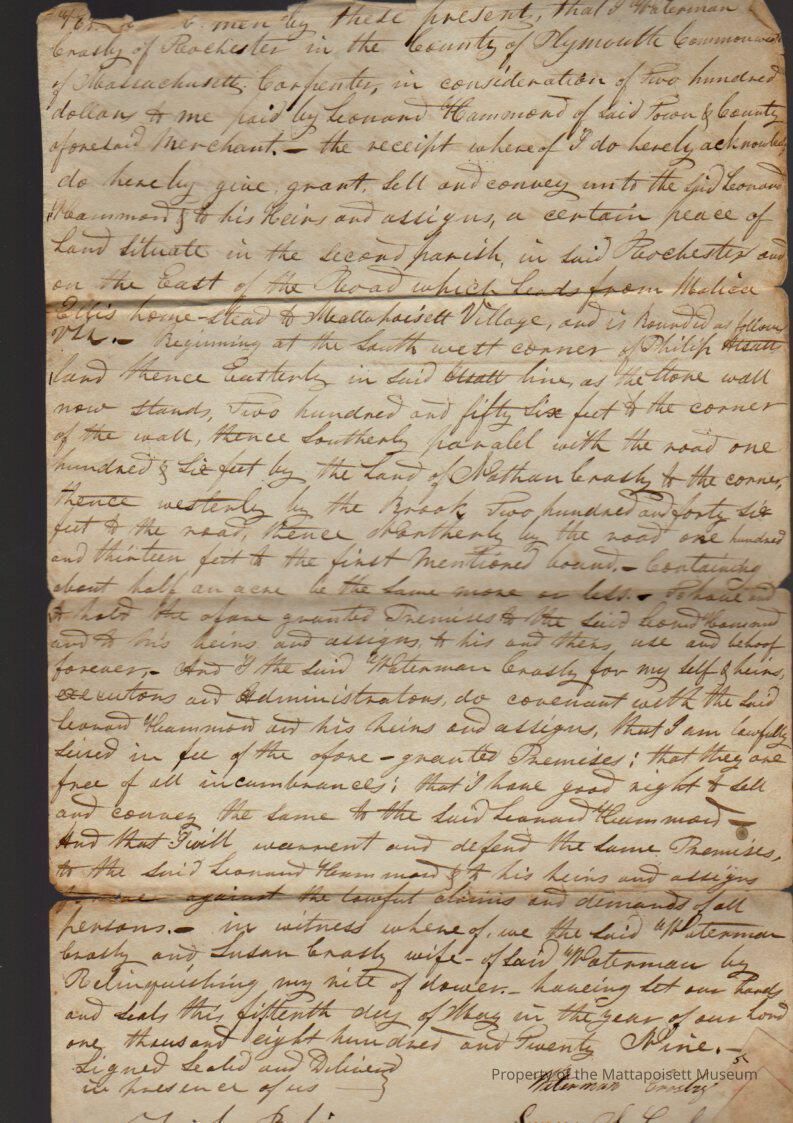 men by these present, that I Waterman
Crosby of Rochester in the County of Plymouth Commonwealth
of Massachusetts Carpenter, in consideration of Two hundred
dollars to me paid by Leonard Hammond of said Town & County
aforesaid Merchant. – the receipt whereof I do hereby acknowledg
do hereby give, grant, sell and convey unto the said Leonard
Hammond & to his Heirs and assigns, a certain peace of
Land situate in the second parish, in said Rochester and
on the East of the Road which Leads from
Ellis home-stead to Mattapoisett Village, and is Bounded as follows
viz. – Beginning at the South west corner of Philip
land thence Easterly in said line, as the stone wall
now stands, Two hundred and fifty six feet to the corner
of the wall, thence Southerly paralel with the road one
hundred & six feet by the Land of Nathan Crosby to the corner,
thence westerly by the Brook Two hundred and forty six
feet to the road, thence Northerly by the road one hundred
and thirteen feet to the first mentioned bound, – Containing
about half an acre be the same more or less. – To have and
to hold the afore granted Premises to the said Leonard Hammond
and to his heirs and assigns, to his and theirs, use and behoof
forever, – And I the said Waterman Crosby for my self & heirs,
executors and Administrators, do covenant with the said
Leonard Hammond and his heirs and assigns, that I am lawfully
seized in fee of the afore-granted Premises; that they are
free of all incumbrances; that I have good right to sell
and convey the same to the said Leonard Hammond –
And that I will warrent and defend the same Premises,
to the said Leonard Hammond & to his heirs and assigns
forever against the lawful claims and demands of all
persons. – in witness where of, we the said Waterman
Crosby and Susan Crosby wife – of said Waterman by
Relinquishing my rite of dower. – haveing set our hands
and seals this fifteenth day of May in the year of our Lord
one thousand eight hundred and Twenty Nine. –
Signed Sealed and Deliverd
in presence of us
Waterman Crosby
Property of the Mattapoisett Museum